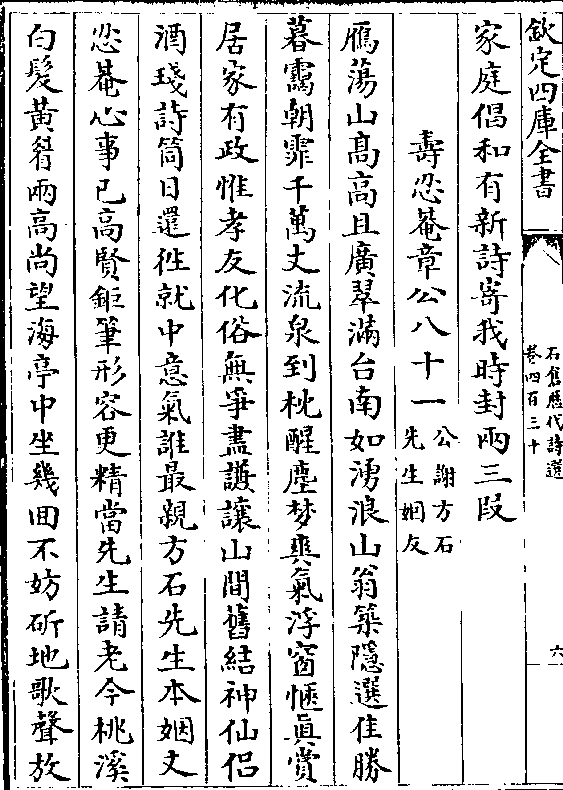 欽定四庫全書
石倉歷代詩選
卷四百三十
六
家庭倡和有新詩寄我時封兩三段
壽忍菴章公八十一公謝方石先生姻友
鴈蕩山高高且廣翠滿台南如湧浪山翁築隱選佳勝
暮靄朝霏千萬丈流泉到枕醒塵梦爽氣浮窗愜真賞
居家有政惟孝友化俗無爭盡謙讓山間舊結神仙侣
酒琖詩筒日還徃就中意氣誰最親方石先生本姻丈
忍菴心事已高賢鉅筆形容更精當先生請老今桃溪
白髮黃眉兩高尚望海亭中坐幾回不妨斫地歌聲放